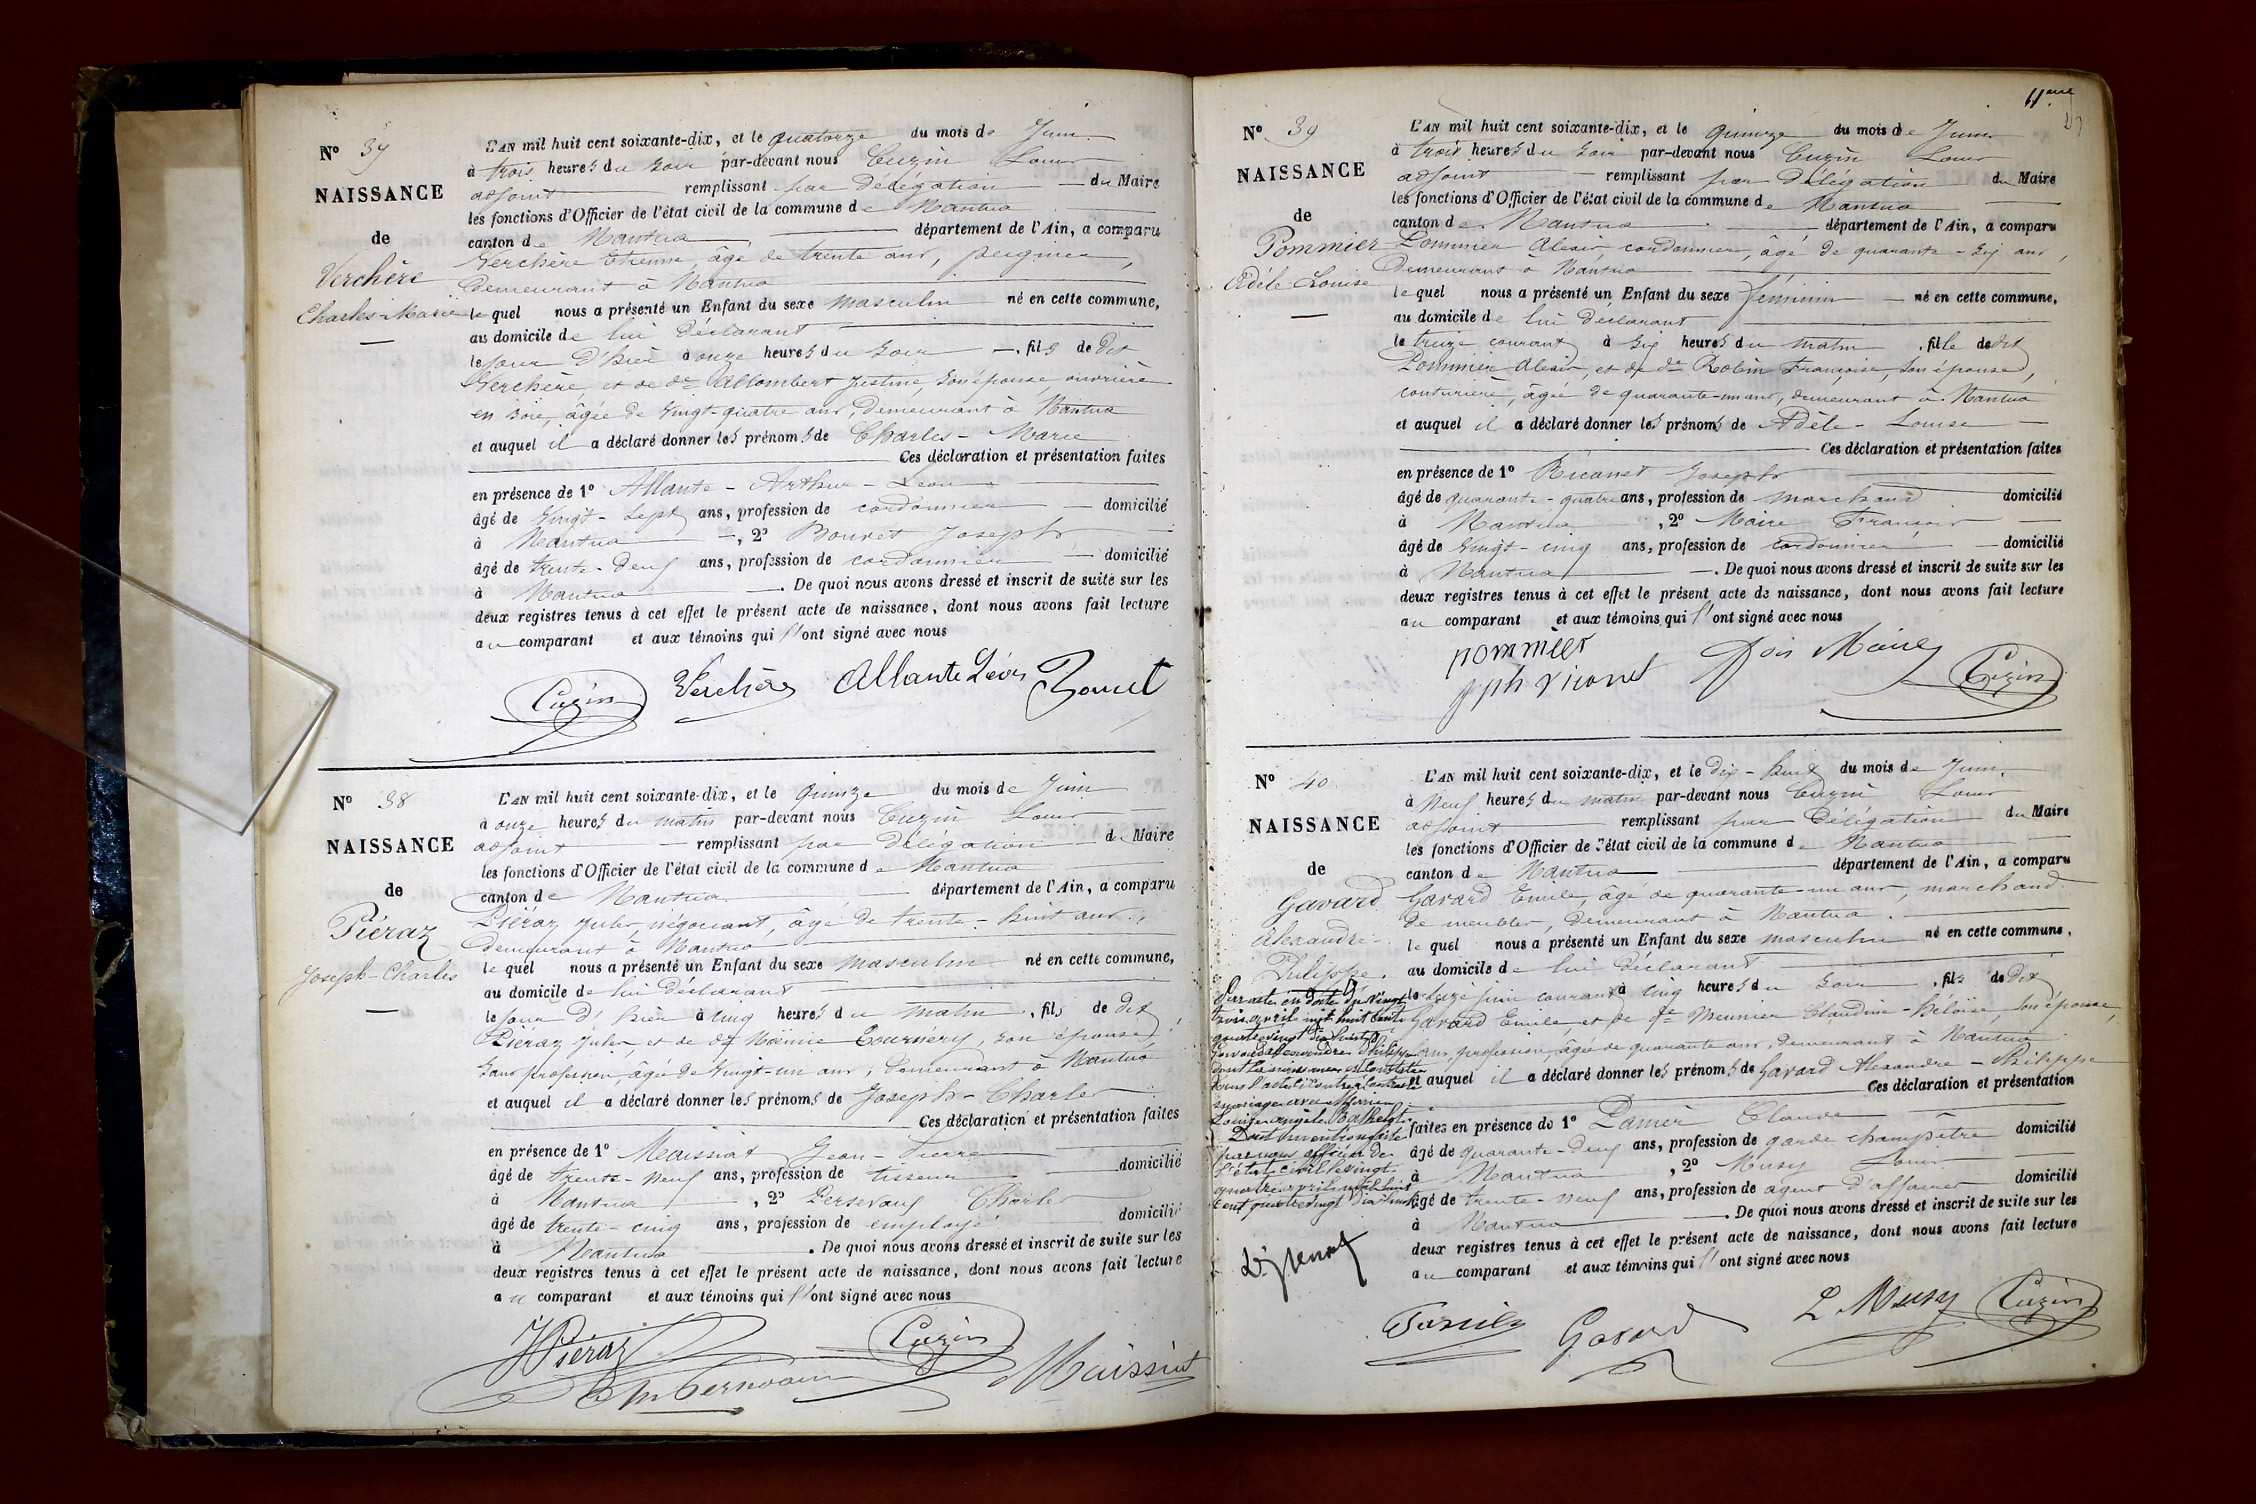 Nº 37
NAISSANCE
de
Verchère
Charles-Marie
L'AN mil huit cent soixante-dix, et le quatorze du mois de Juin
à trois heures du soir par-devant nous Cuzin Louis
adjoint remplissant par délégation du Maire
les fonctions d'Officier de l'état civil de la commune de Nantua
canton de Nantua département de l'Ain, a comparu
Verchère Etienne, âgé de trente ans, peignier,
demeurant à Nantua
lequel nous a présenté un Enfant du sexe masculin né en cette commune,
au domicile de lui déclarant
le jour d'hier à onze heures du soir fils de dit
Verchère, et de de Allombert Justine, son épouse ouvrière
en soie, âgée de vingt-quatre ans, demeurant à Nantua
et auquel il a déclaré donner les prénoms de Charles-Marie
Ces déclaration et présentation faites
en présence de 1º Allante-Arthur-Léon
âgé de vingt-sept ans, profession de cordonnier domicilié
à Nantua, 2º Bouvet Joseph
âgé de trente-deux ans, profession de cordonnier domicilié
à Nantua. De quoi nous avons dressé et inscrit de suite sur les
deux registres tenus à cet effet le présent acte de naissance, dont nous avons fait lecture
au comparant et aux témoins qui l'ont signé avec nous
Cuzin Verchère Allante Léon Bouvet
Nº 38
NAISSANCE
de
Piéraz
Joseph-Charles
L'AN mil huit cent soixante-dix, et le quinze du mois de Juin
à onze heures du matin par-devant nous Cuzin Louis
adjoint remplissant par délégation du Maire
les fonctions d'Officier de l'état civil de la commune de Nantua
canton de Nantua département de l'Ain, a comparu
Piéraz Jules, négociant, âgé de trente-huit ans,
demeurant à Nantua
lequel nous a présenté un Enfant du sexe masculin né en cette commune,
au domicile de lui déclarant
le jour d'hier à cinq heures du matin, fils de dit
Piéraz Jules, et de de Noëmie Tournéry, son épouse,
sans profession, âgée de vingt-un ans, demeurant à Nantua
et auquel il a déclaré donner les prénoms de Joseph-Charles
Ces déclaration et présentation faites
en présence de 1º Maissiat Jean-Pierre
âgé de trente-neuf ans, profession de tisseur domicilié
à Nantua, 2º Charles
âgé de trente-cinq ans, profession de employé domicilié
à Nantua. De quoi nous avons dressé et inscrit de suite sur les
deux registres tenus à cet effet le présent acte de naissance, dont nous avons fait lecture
au comparant et aux témoins qui l'ont signé avec nous
JPiéraz Cuzin
Maissiat
Nº 39
NAISSANCE
de
Pommier
Adèle-Louise
L'AN mil huit cent soixante-dix, et le quinze du mois de Juin
à trois heures du soir par-devant nous Cuzin Louis
adjoint remplissant par délégation du Maire
les fonctions d'Officier de l'état civil de la commune de Nantua
canton de Nantua département de l'Ain, a comparu
Pommier Alexis, cordonnier, âgé de quarante-six ans,
demeurant à Nantua
lequel nous a présenté un Enfant du sexe féminin né en cette commune,
au domicile de lui déclarant
le treize courant à six heures du matin, fille de dit
Pommier Alexis, et de de Robin Françoise, son épouse,
couturière, âgée de quarante-un ans, demeurant à Nantua
et auquel il a déclaré donner les prénoms de Adèle-Louise
Ces déclaration et présentation faites
en présence de 1º Joseph
âgé de quarante-quatre ans, profession de marchand domicilié
à Nantua, 2º Maire François
âgé de vingt-cinq ans, profession de cordonnier domicilié
à Nantua. De quoi nous avons dressé et inscrit de suite sur les
deux registres tenus à cet effet le présent acte de naissance, dont nous avons fait lecture
au comparant et aux témoins qui l'ont signé avec nous
pommier
Maire Cuzin
Nº 40
NAISSANCE
de
Gavard
Alexandre-
Philippe
Par acte en date du vingt
trois avril mil huit cent
quatre vingt dix huit
Gavard Alexandre Philippe
dont la naissance est constatée
dans l'acte ci contre a contracté
mariage avec
Louise Angèle
Dont mention faite
par nous officier de
l'état civil le vingt
quatre avril mil huit
cent quatre vingt dix huit
L'AN mil huit cent soixante-dix, et le dix-huit du mois de Juin
à neuf heures du matin par-devant nous Cuzin Louis
adjoint remplissant par délégation du Maire
les fonctions d'Officier de l'état civil de la commune de Nantua
canton de Nantua département de l'Ain, a comparu
Gavard Emile, âgé de quarante-un ans, marchand
de meubles, demeurant à Nantua
lequel nous a présenté un Enfant du sexe masculin né en cette commune,
au domicile de lui déclarant
le seize juin courant à cinq heures du soir, fils de dit
Gavard Emile, et de de Meunier Claudine-Héloïse, son épouse,
sans profession, âgée de quarante ans, demeurant à Nantua
et auquel il a déclaré donner les prénoms de Gavard Alexandre-Philippe
Ces déclaration et présentation
faites en présence de 1º Claude
âgé de quarante-deux ans, profession de garde champêtre domicilié
à Nantua, 2º Musy Louis
âgé de trente-neuf ans, profession de agent d'affaires domicilié
à Nantua. De quoi nous avons dressé et inscrit de suite sur les
deux registres tenus à cet effet le présent acte de naissance, dont nous avons fait lecture
au comparant et aux témoins qui l'ont signé avec nous
Gavard L Musy Cuzin